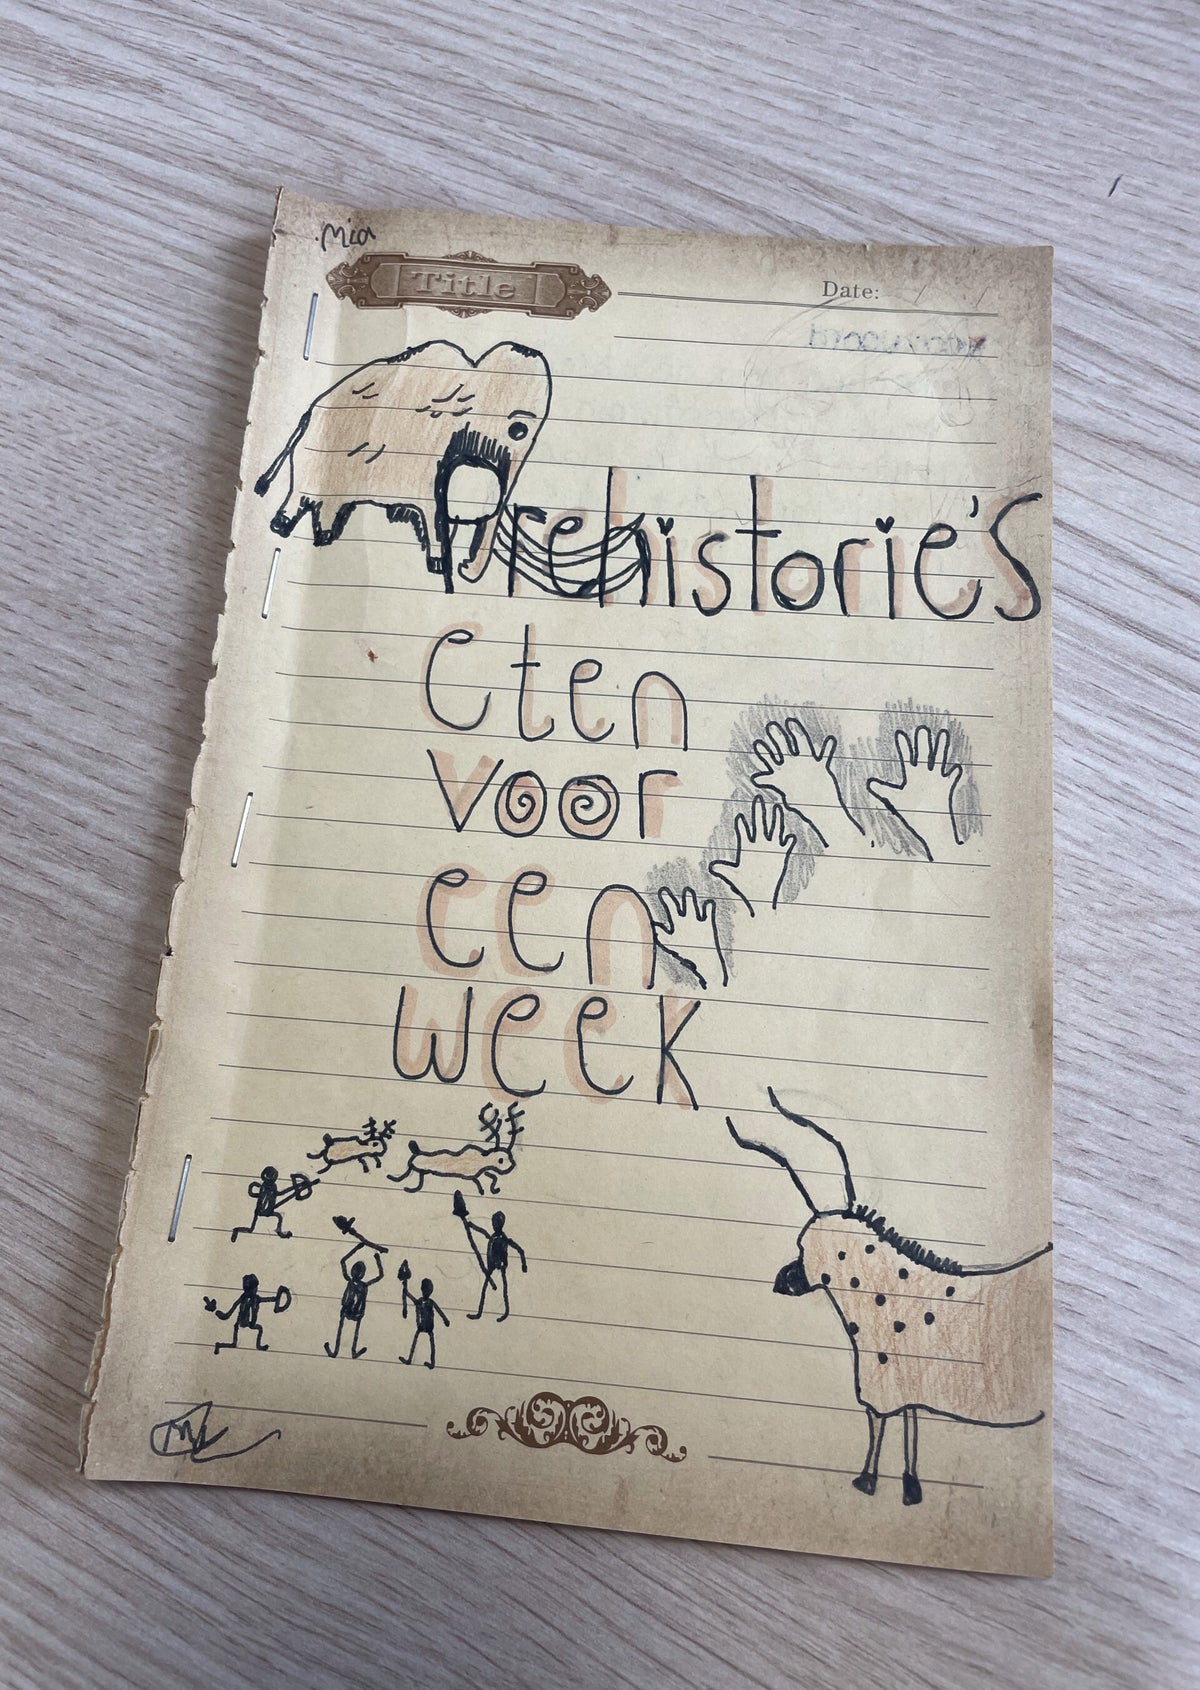 Mia
Title
Date: / /
Prehistorie's
eten
voor
een
week